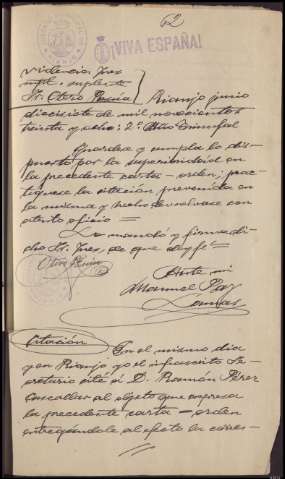 62
¡VIVA ESPAÑA!
Providencia Juez
Sr. Otero Rianjo junio
diecisiete de mil novecientos
treinta y ocho: 2º Año Triunfal
Guardese y cumpla lo dis-
puesto por la superioridad en
la precedente carta-orden; prac-
tiquese la citación prevenida en
la misma y hecho devuelvase con
atento oficio =
Lo mandó y firma di-
cho Sr. Juez, de que doy fe =
Ante mi
Manuel
Citación En el mismo dia
y en Rianjo yo el infrascrito Se-
cretario cité a D. Ramón Pérez
al objeto que expresa
la precedente carta-orden
entregándole al efecto la